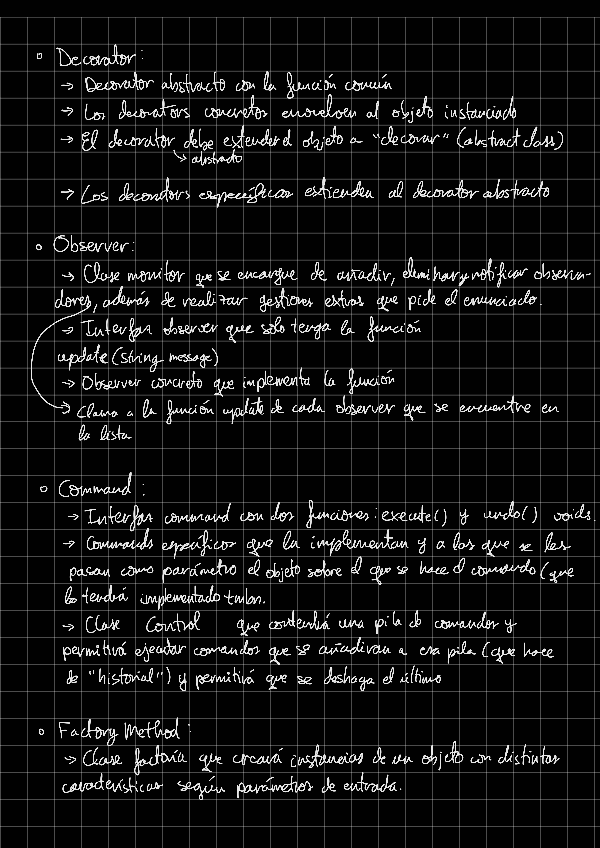 ▫ Decorator:
→ Decorator abstracto con la función común
→ Los decorators concretos envuelven al objeto instanciado
→ El decorator debe extender el objeto a "decorar" (abstract class)
↳ abstracto
→ Los decorators específicos extienden al decorator abstracto
◦ Observer:
→ Clase monitor que se encargue de añadir, eliminar y notificar observa-
dores, además de realizar gestiones extras que pide el enunciado.
→ Interfaz observer que solo tenga la función
update(string message)
→ Observer concreto que implementa la función
→ Llama a la función update de cada observer que se encuentre en
la lista
◦ Command:
→ Interfaz command con dos funciones: execute() y undo() voids.
→ Commands específicos que la implementan y a los que se les
pasan como parámetro el objeto sobre el que se hace el comando (que
lo tendrá implementado
→ Clase Control que contendrá una pila de comandos y
permitirá ejecutar comandos que se añadiran a esa pila (que hace
de "historial") y permitirá que se deshaga el último
◦ Factory Method:
→ Clase factoría que creará instancias de un objeto con distintas
características según parámetros de entrada.